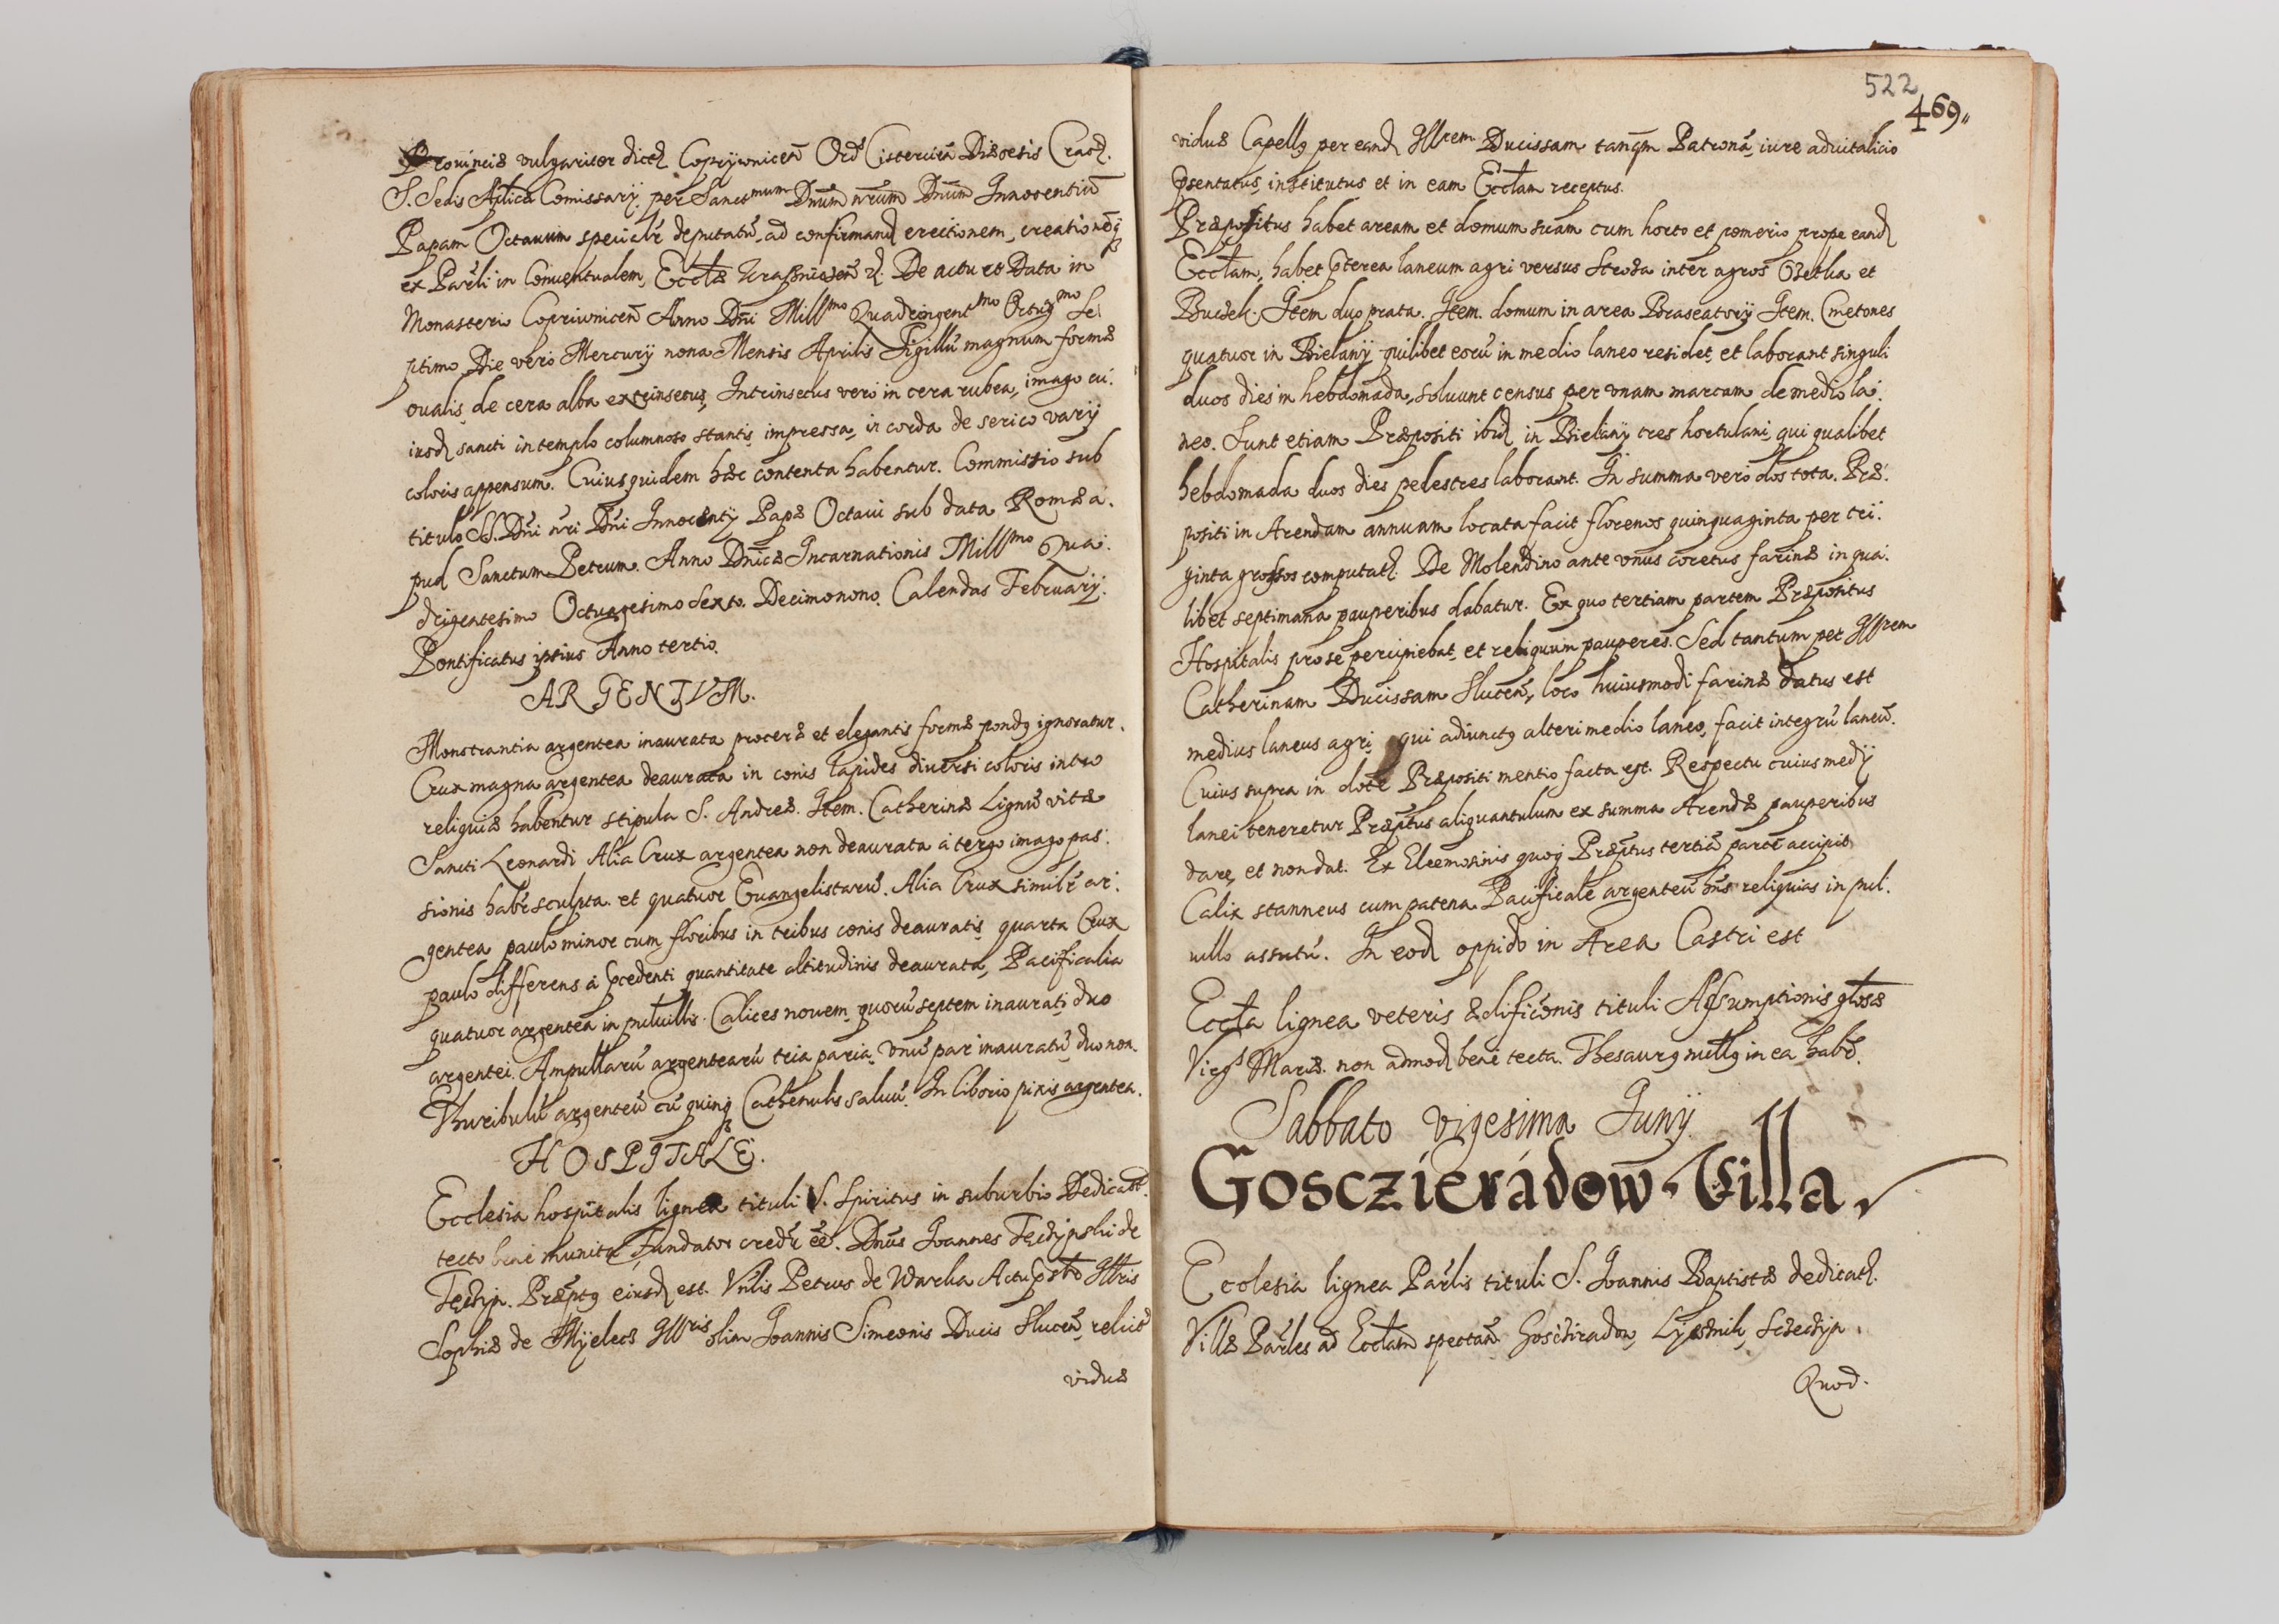 Prouinciæ vulgariter dict Coprzywnicen̄ Ord Cistercien̄ Diæcesis Crac.
S. Sedis Aplicæ Comissarij. per Sanctmum Dnum nrum Dnum Innocentiū
Papam Octauum specialr deputatū, ad confirmand erectionem, creationēq
ex Parli in Conuentualem, Ecclæ Krasnicien̄. De actu et Data in
Monasterio Copriwnicen̄ Anno Dni Millmo Quadringentmo Octugmo Se:
ptimo Die vero Mercurij nona Mensis Aprilis Sigillū magnum formæ
oualis de cera alba extrinsecus, Intrinsecus vero in cera rubea, imago cu:
iusd sancti in templo columnoso stantis impressa, in corda de serico varij
coloris appensum. Cuius quidem hæc contenta habentur. Commissio sub
titulo SS. Dni nri Dni Innocenty Papæ Octaui sub data Romæ a:
pud Sanctum Petrum. Anno Dnicæ Incarnationis Millmo Qua:
dringentesimo Octuagesimo Sexto. Decimonono. Calendas February.
Pontificatus ipsius Anno tertio.
ARGENTVM.
Monstrantia argentea inaurata proceræ et elegantis formæ pondq ignoratur.
Crux magna argentea deaurata in conis lapides diuersi coloris intro
reliquiæ habentur stipula S. Andreæ. Item. Catherinæ Lignū vitæ
Sancti Leonardi Alia Crux argentea non deaurata à tergo imago pas:
sionis habr sculpta. et quatuor Euangelistarū. Alia Crux similr ar:
gentea paulo minor cum floribus in tribus conis deauratis quarta Crux
paulo differens à pcedenti quantitate altitudinis deaurata, Pacificalia
quatuor argentea in puluillis. Calices nouem, quorū septem inaurati, duo
argentei. Ampullarū argentearū tria paria. Vnū par inauratū, duo non.
Thuribulū argenteū cū quinq Cathenulis saluū. In Ciborio pixis argentea.
HOSPITALE.
Ecclesia hospitalis lignea tituli S. Spiritus in suburbio Dedicat.
tecto bene munita Fundator credr eē. Dnus Joannes Teczynski de
Teczyn. Præptq eiusd est. Vnlis Petrus de Warka Actu psto Illris
Sophiæ de Myelecz Illris olim Joannis Simeonis Ducis Slucen̄, relict
viduæ
522
469
viduæ Capellq per eand Illrem Ducissam tanqm Patronā, iure aduitalicio
psentatus, institutus et in eam Ecclam receptus.
Præpositus habet aream et domum suam cum horto et pomerio prope eand
Ecclam, habet pterea laneum agri versus Stroza inter agros Ozetka et
Buczek. Item duo prata. Item. domum in area Braseatorij Item. Cmetones
quatuor in Bielany quilibet eorū in medio laneo residet, et laborant singuli
duos dies in hebdomada, soluunt census per vnam marcam de medio la:
neo. Sunt etiam Præpositi ibid in Bielany tres hortulani, qui qualibet
hebdomada duos dies pedestres laborant. In summa vero dos tota. Præ:
positi in Arendam annuam locata facit florenos quinquaginta per tri:
ginta grossos computat. De Molendino ante vnus coretus farinæ in qua:
libet septimana pauperibus dabatur. Ex quo tertiam partem Præpositus
Hospitalis pro se percipiebat, et reliquum pauperes. Sed tantum per Illrem
Catherinam Ducissam Slucen̄, loco huiusmodi farinæ datus est
medius laneus agri qui adiunctq alteri medio laneo, facit integrū laneū.
Cuius supra in dote Præpositi mentio facta est. Respectu cuius medij
lanei teneretur Præptus aliquantulum ex summa Arendæ pauperibus
dare, et non dat. Ex Eleemosinis quoq Præptus tertiā partē accipit
Calix stanneus cum patena. Pacificale argenteū hns reliquias in pul:
uillo assutū. In eod oppido in Area Castri est
Eccla lignea veteris ædificonis tituli Assumptionis glosæ
Virgs Mariæ. non admod bene tecta. Thesaurq nullq in ea habr.
Sabbato vigesima Junij
Goscziéradow Villa
Ecclesia lignea Parlis tituli S. Joannis Baptistæ dedicat.
Villæ Parles ad Ecclam spectan̄ Goscziradow, Lyesnik, Sczeczyn.
Quod.